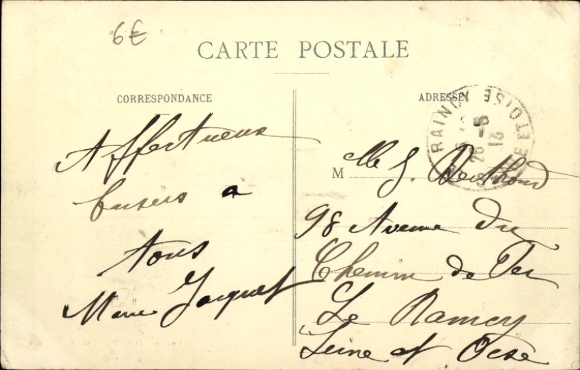 6€
CARTE POSTALE
CORRESPONDANCE
ADRESSE
Affectueux
baisers à
tous
Marie Jacquet
RAINCY
SEINE ET OISE
26 -5
13
M elle J. Berthond
98 Avenue du
Chemin de Fer
Le Raincy
Seine et Oise